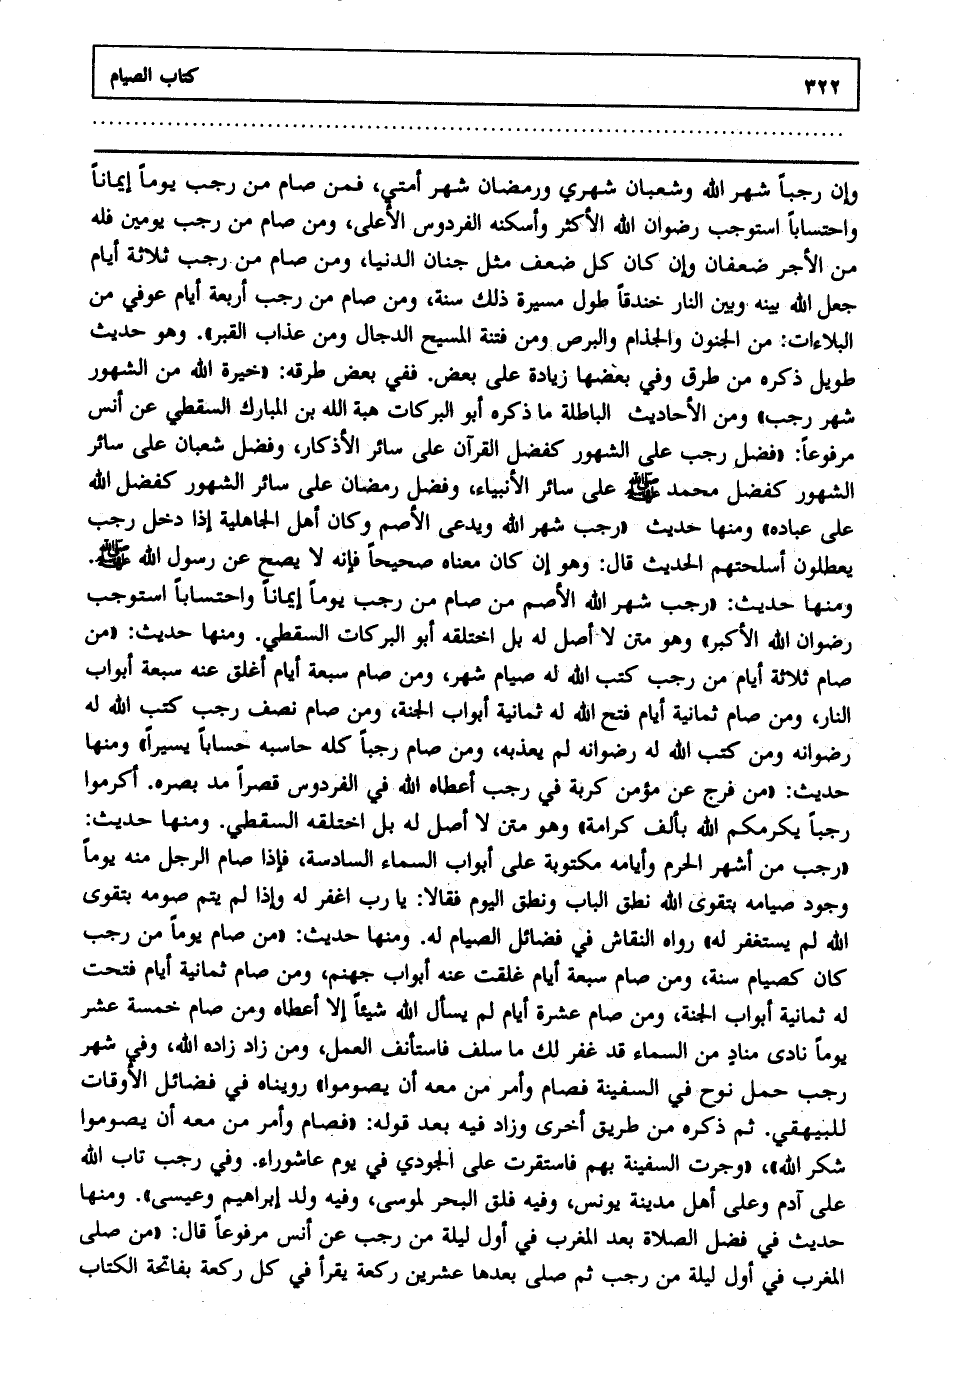 ٣٢٢
كتاب الصيام
وإن رجباً شهر الله وشعبان شهري ورمضان شهر أمتي، فمن صام من رجب يوماً إيماناً
واحتساباً استوجب رضوان الله الأكثر وأسكنه الفردوس الأعلى، ومن صام من رجب يومين فله
من الأجر ضعفان وإن كان كل ضعف مثل جنان الدنيا، ومن صام من رجب ثلاثة أيام
جعل الله بينه وبين النار خندقاً طول مسيرة ذلك سنة، ومن صام من رجب أربعة أيام عوفي من
البلاءات: من الجنون والجذام والبرص ومن فتنة المسيح الدجال ومن عذاب القبر». وهو حديث
طويل ذكره من طرق وفي بعضها زيادة على بعض. ففي بعض طرقه: «خيرة الله من الشهور
شهر رجب» ومن الأحاديث الباطلة ما ذكره أبو البركات هبة الله بن المبارك السقطي عن أنس
مرفوعاً: «فضل رجب على الشهور كفضل القرآن على سائر الأذكار، وفضل شعبان على سائر
الشهور كفضل محمد ﷺ على سائر الأنبياء، وفضل رمضان على سائر الشهور كفضل الله
على عباده» ومنها حديث «رجب شهر الله ويدعى الأصم وكان أهل الجاهلية إذا دخل رجب
يعطلون أسلحتهم الحديث قال: وهو إن كان معناه صحيحاً فإنه لا يصح عن رسول الله ﷺ.
ومنها حديث: «رجب شهر الله الأصم من صام من رجب يوماً إيماناً واحتساباً استوجب
رضوان الله الأكبر» وهو متن لا أصل له بل اختلقه أبو البركات السقطي. ومنها حديث: «من
صام ثلاثة أيام من رجب كتب الله له صيام شهر، ومن صام سبعة أيام أغلق عنه سبعة أبواب
النار، ومن صام ثمانية أيام فتح الله له ثمانية أبواب الجنة، ومن صام نصف رجب كتب الله له
رضوانه ومن كتب الله له رضوانه لم يعذبه، ومن صام رجباً كله حاسبه حساباً يسيراً» ومنها
حديث: «من فرج عن مؤمن كربة في رجب أعطاه الله في الفردوس قصراً مد بصره. أكرموا
رجباً يكرمكم الله بألف كرامة» وهو متن لا أصل له بل اختلقه السقطي. ومنها حديث:
«رجب من أشهر الحرم وأيامه مكتوبة على أبواب السماء السادسة، فإذا صام الرجل منه يوماً
وجود صيامه بتقوى الله نطق الباب ونطق اليوم فقالا: يا رب اغفر له وإذا لم يتم صومه بتقوى
الله لم يستغفر له» رواه النقاش في فضائل الصيام له. ومنها حديث: «من صام يوماً من رجب
كان كصيام سنة، ومن صام سبعة أيام غلقت عنه أبواب جهنم، ومن صام ثمانية أيام فتحت
له ثمانية أبواب الجنة، ومن صام عشرة أيام لم يسأل الله شيئاً إلا أعطاه ومن صام خمسة عشر
يوماً نادى منادٍ من السماء قد غفر لك ما سلف فاستأنف العمل، ومن زاد زاده الله، وفي شهر
رجب حمل نوح في السفينة فصام وأمر من معه أن يصوموا» رويناه في فضائل الأوقات
للبيهقي. ثم ذكره من طريق أخرى وزاد فيه بعد قوله: «فصام وأمر من معه أن يصوموا
شكر الله»، «وجرت السفينة بهم فاستقرت على الجودي في يوم عاشوراء. وفي رجب تاب الله
على آدم وعلى أهل مدينة يونس، وفيه فلق البحر لموسى، وفيه ولد إبراهيم وعيسى». ومنها
حديث في فضل الصلاة بعد المغرب في أول ليلة من رجب عن أنس مرفوعاً قال: «من صلى
المغرب في أول ليلة من رجب ثم صلى بعدها عشرين ركعة يقرأ في كل ركعة بفاتحة الكتاب